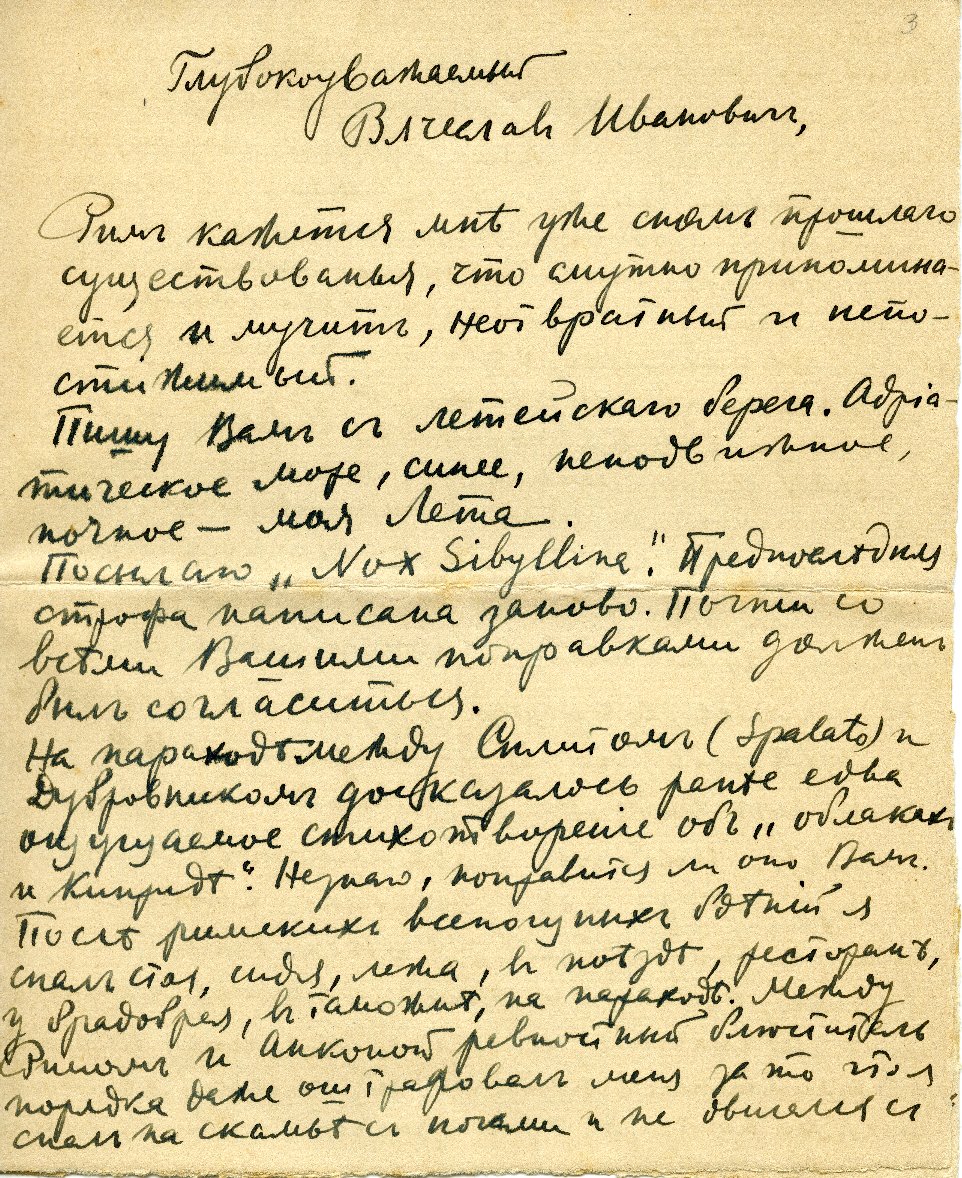 3
Глубокоуважаемый
Вячеславъ Ивановичъ,
Римъ кажется мнѣ уже сномъ прошлаго
существованья, что смутно припомина-
ется и мучитъ, неотвратный и непо-
стижимый.
Пишу Вамъ съ летейскаго берега. Адріа-
тическое море, синее, неподвижное,
ночное — моя Лета.
Посылаю „Nox Sibyllina". Предпослѣдняя
строфа написана заново. Почти со
всѣми Вашими поправками долженъ
былъ согласиться.
На параходѣ между Сплитомъ (Spalato) и
Дубровникомъ досказалось ранѣе едва
ощущаемое стихотвореніе объ „облакахъ
и Кипридѣ". Незнаю, понравится ли оно Вамъ.
Послѣ римскихъ всенощныхъ бдѣній я
спалъ стоя, сидя, лежа, въ поѣздѣ, ресторанѣ,
у брадобрея, въ таможнѣ, на параходѣ. Между
Римомъ и Анконой ревностный блюститель
порядка даже оштрафовалъ меня за то что я
спалъ на скамьѣ съ ногами и не